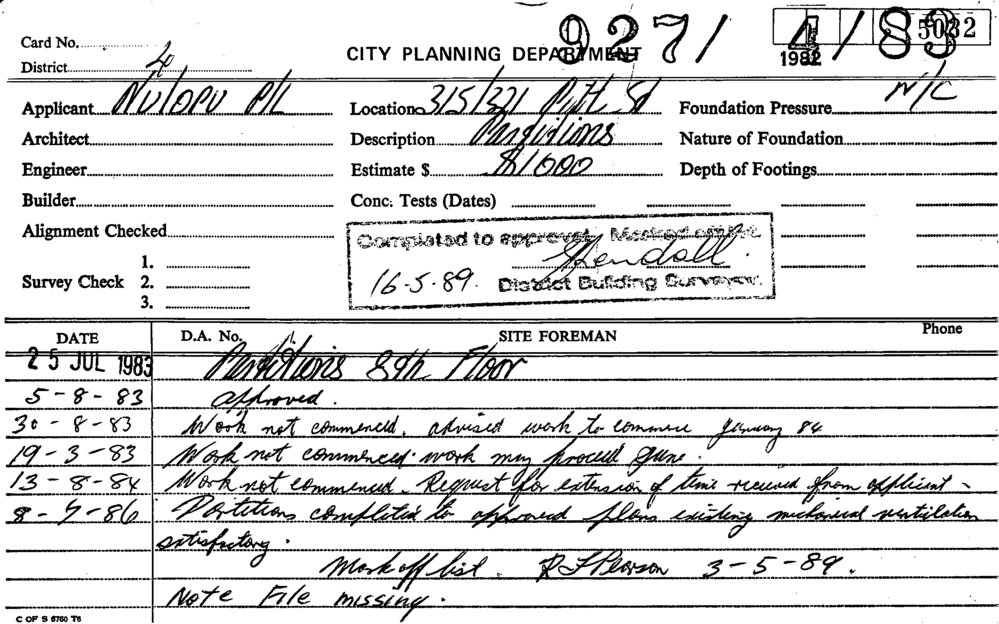 9271 4/83 5032
1982
Card No.
CITY PLANNING DEPARTMENT
District 4
Applicant Nulopu P/L Location 315/321 Pitt St Foundation Pressure N/C
Architect Description Partitions Nature of Foundation
Engineer Estimate $ $1000 Depth of Footings
Builder Conc. Tests (Dates)
Alignment Checked
Completed to approval. Marked off list.
Survey Check 1. 2. 3.
Kendall.
16-5-89. District Building Surveyor.
DATE D.A. No. SITE FOREMAN Phone
25 JUL 1983 Partitions 8th Floor
5-8-83 approved.
30-8-83 Work not commenced. advised work to commence January 84
19-3-83 Work not commenced. work may proceed June.
13-8-84 Work not commenced. Request for extension of time received from applicant -
8-7-86 Partitions completed to approved plans existing mechanical ventilation
satisfactory.
Mark off list. R Pearson 3-5-89.
Note File missing.
C OF S 6760 T6